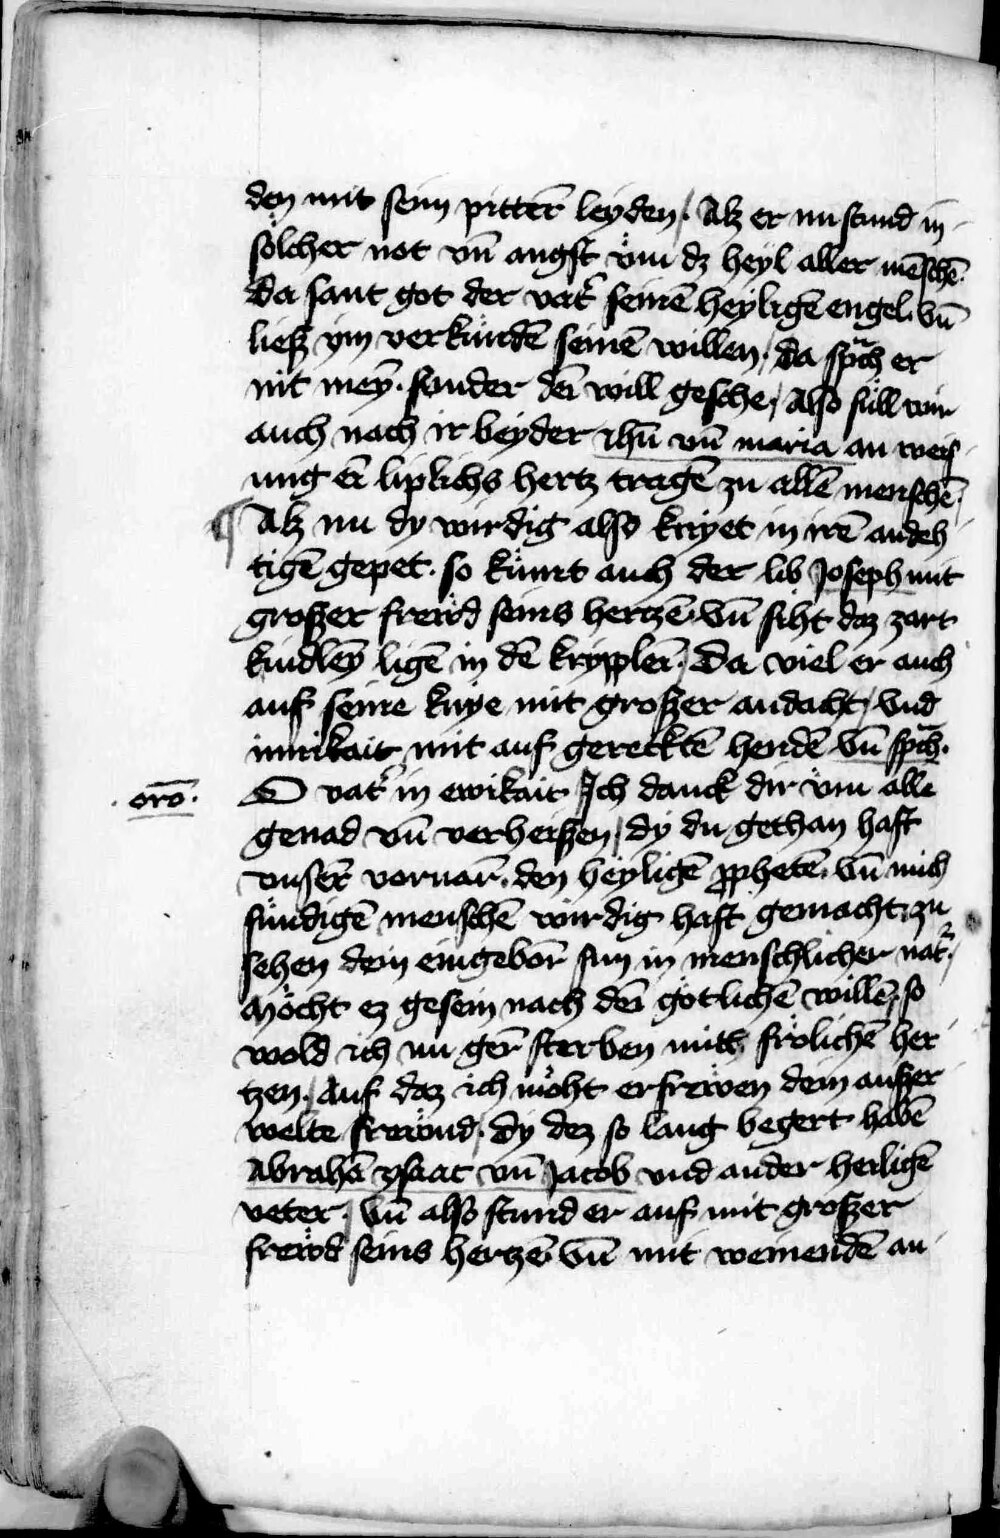 den mit seim pitterr̄ leyden / Alz er nu stund in
sölcher not vn̄ angst vm̈ dz heyl aller mēschē.
Da sant got der vat̕ seinē heyligē engel. vn̄
liesz ym verkündē seinē willen. da spͣch er
nit mey̅. sunder dēī will gesche / Also süll wir
auch nach ir beyder ihū vn̄ maria an weis
ung eī liplichs hertz tragē zu allē menschē /
¶ Alz nu dy wirdig also knyet in irē andeh
tigē gepet. so kümt auch der lib Joseph mit
groszer frewd seins hertzē. vn̄ siht daz zart
kindley̅ ligē in dē kripplēī. Da viel er auch
auf seine knye mit groszer andacht / vnd
innikait mit auf gerecktē hendē vn̄ spͣch.
· orō · O vat̕ in ewikait Ich danck dir vm̈ alle
genad vn̄ verheiszen / dy du gethan hast
vnserr̄ vorvarr̄. den heyligē ꝓphetē. vn̄ mich
sündigē menschē wirdig hast gemacht. zu
sehen dein eingeborr̄ sun in menschlicher nat̕ /
Möcht ez gesein nach dēī götlichē willē. so
wold ich nu gerr̄ sterben mitt frölichē her
tzen / Auf daz ich möht erfrewen dein auszer
welte frewnd / dy dez so lang begert habē
Abrahā ysaac vn̄ Jacob vnd ander heiligē
veter / vn̄ also stund er auf mit groszer
frewd seins hertzē vn̄ mit weinendē au